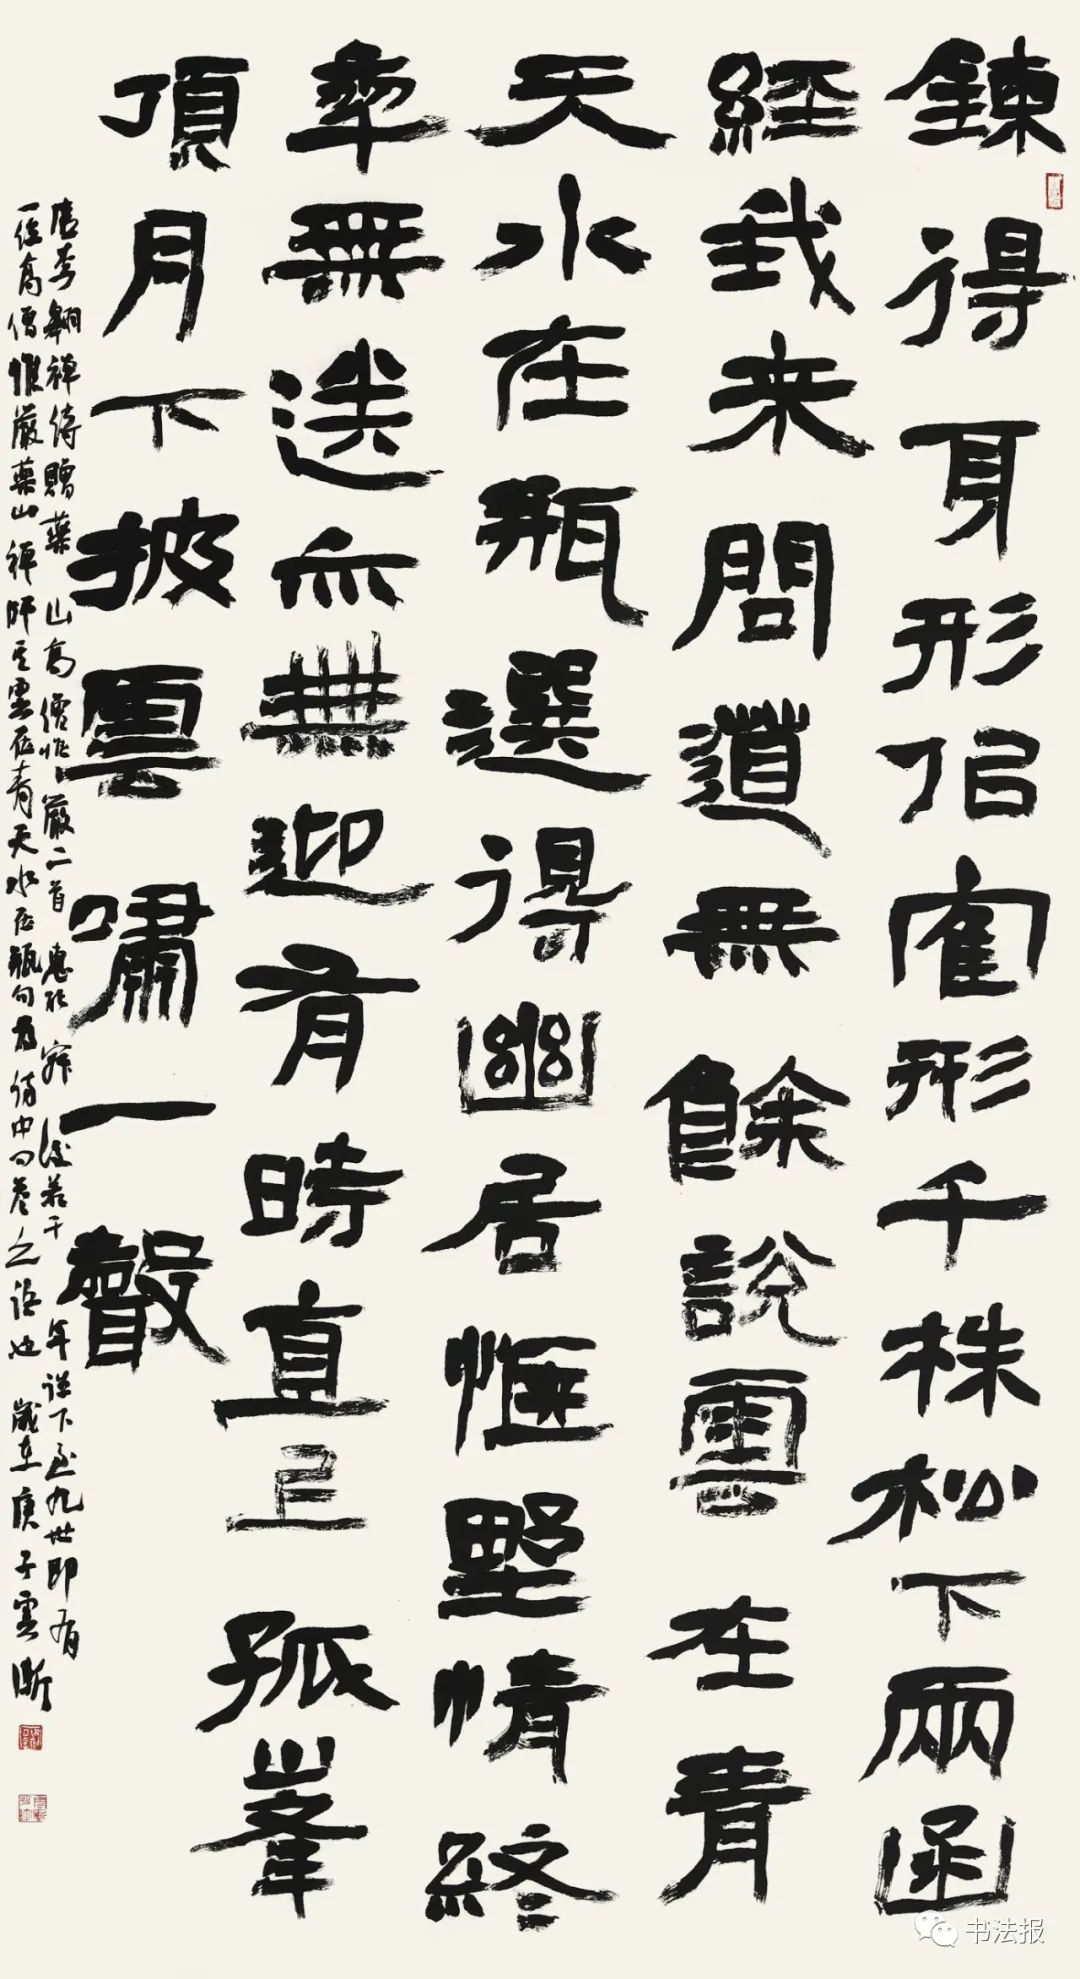 鍊得身形佀寉形千株松下兩函
經我来問道無餘說雲在青
天水在瓶選得幽居愜野情終
年無送亦無迎有時直上孤峯
頂月下披雲嘯一聲
唐李翱禅詩贈藥山高僧惟嚴二首惠於寂後若干年下至九世即有
一位高僧惟嚴藥山禅師其雲在青天水在瓶句為詩中問答之語也歲在庚子雲
书法报